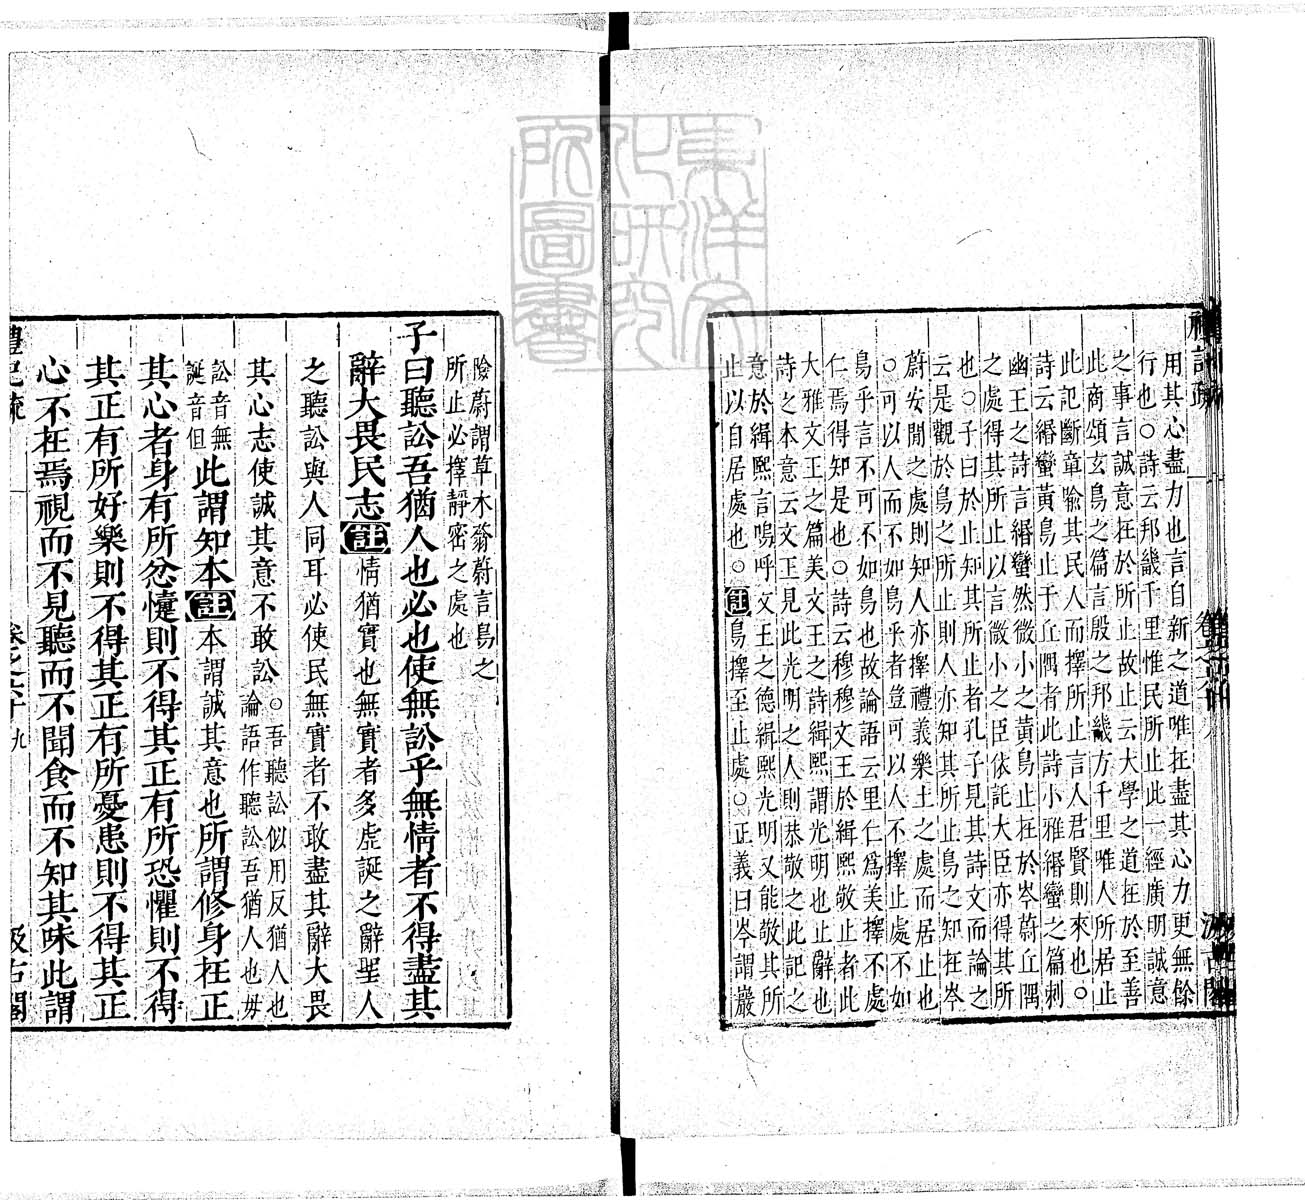 東洋文
化研究
所圖書
禮記疏
用其心盡力也言自新之道唯在盡其心力更無餘
行也○詩云邦畿千里惟民所止此一經廣明誠意
之事言誠意在於所止故止云大學之道在於至善
此商頌玄鳥之篇言殷之邦畿方千里唯人所居止
此記斷章喻其民人而擇所止言人君賢則來也○
詩云緡蠻黃鳥止于丘隅者此詩小雅緡蠻之篇刺
幽王之詩言緡蠻然微小之黃鳥止在於岑蔚丘隅
之處得其所止以言微小之臣依託大臣亦得其所
也○子曰於止知其所止者孔子見其詩文而論之
云是觀於鳥之所止則人亦知其所止鳥之知在岑
蔚安閒之處則知人亦擇禮義樂土之處而居止也
○可以人而不如鳥乎者豈可以人不擇止處不如
鳥乎言不可不如鳥也故論語云里仁爲美擇不處
仁焉得知是也○詩云穆穆文王於緝熙敬止者此
大雅文王之篇美文王之詩緝熙謂光明也止辭也
詩之本意云文王見此光明之人則恭敬之此記之
意於緝熙言嗚呼文王之德緝熙光明又能敬其所
止以自居處也○註鳥擇至止處○正義曰岑謂巖
險蔚謂草木蓊蔚言鳥之
所止必擇靜密之處也
子曰聽訟吾猶人也必也使無訟乎無情者不得盡其
辭大畏民志註情猶實也無實者多虛誕之辭聖人
之聽訟與人同耳必使民無實者不敢盡其辭大畏
其心志使誠其意不敢訟○吾聽訟似用反猶人也
論語作聽訟吾猶人也毋
訟音無
誕音但
此謂知本註本謂誠其意也所謂修身在正
其心者身有所忿懥則不得其正有所恐懼則不得
其正有所好樂則不得其正有所憂患則不得其正
心不在焉視而不見聽而不聞食而不知其味此謂
禮記疏 卷之六十 九 汲古閣